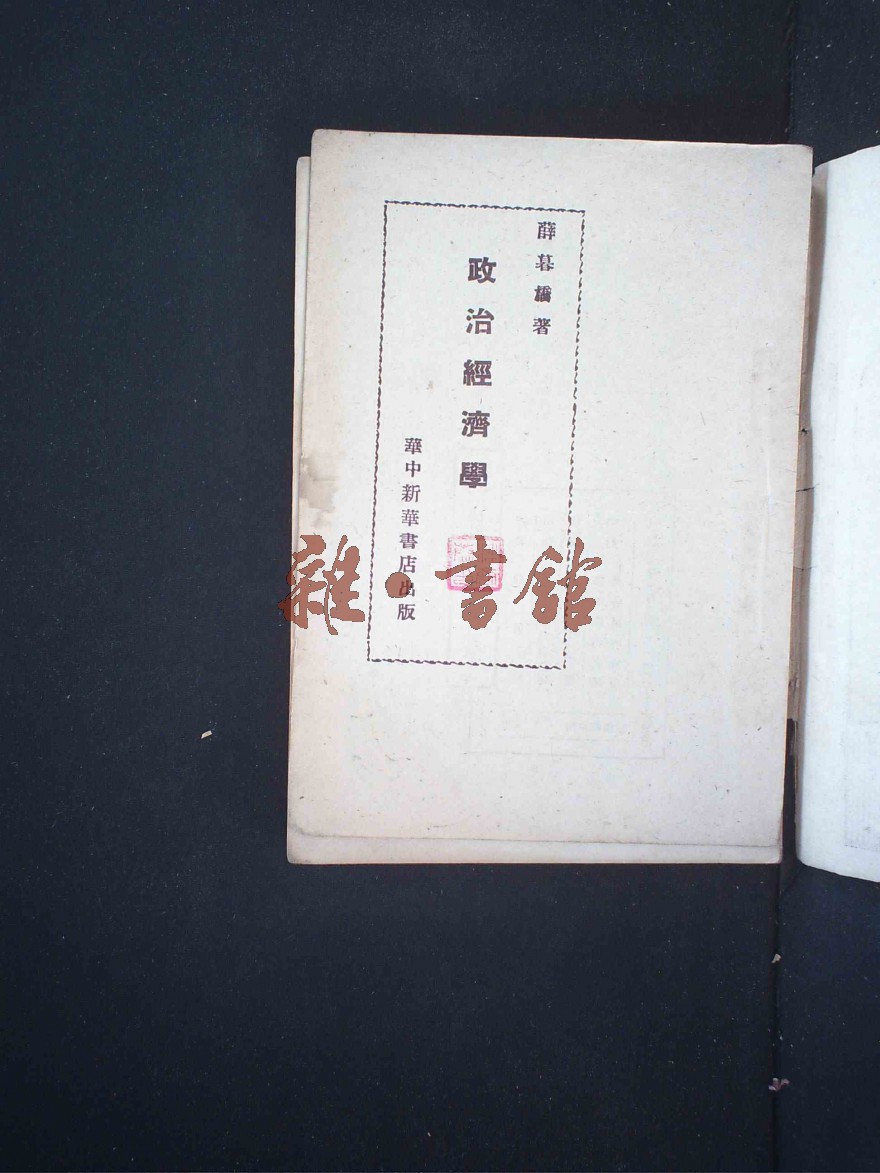 薛暮橋著
政治經濟學
華中新華書店出版
雜·書館